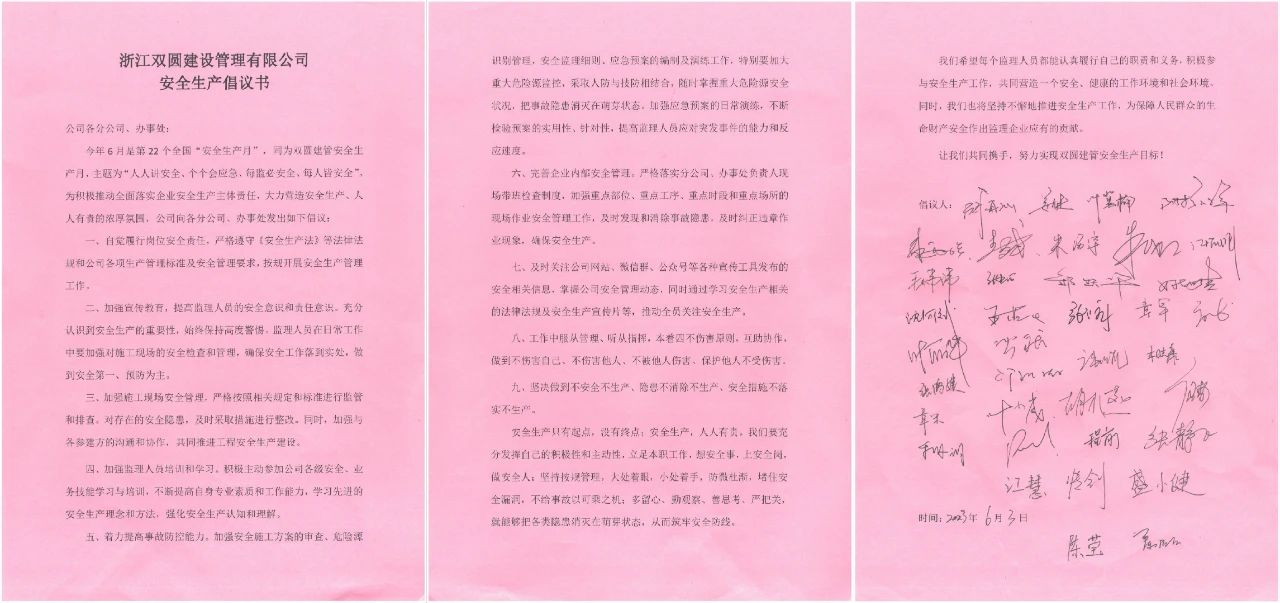 浙江双圆建设管理有限公司
安全生产倡议书
公司各分公司、办事处：
今年6月是第22个全国“安全生产月”，同为双圆建管安全生
产月，主题为“人人讲安全、个个会应急、每监必安全、每人皆安全”，
为积极推动全面落实企业安全生产主体责任，大力营造安全生产、人
人有责的浓厚氛围，公司向各分公司、办事处发出如下倡议：
一、自觉履行岗位安全责任，严格遵守《安全生产法》等法律法
规和公司各项生产管理标准及安全管理要求，按规开展安全生产管理
工作。
二、加强宣传教育，提高监理人员的安全意识和责任意识。充分
认识到安全生产的重要性，始终保持高度警惕。监理人员在日常工作
中要加强对施工现场的安全检查和管理，确保安全工作落到实处，做
到安全第一、预防为主。
三、加强施工现场安全管理。严格按照相关规定和标准进行监管
和排查，对存在的安全隐患，及时采取措施进行整改。同时，加强与
各参建方的沟通和协作，共同推进工程安全生产建设。
四、加强监理人员培训和学习。积极主动参加公司各级安全、业
务技能学习与培训，不断提高自身专业素质和工作能力，学习先进的
安全生产理念和方法，强化安全生产认知和理解。
五、着力提高事故防控能力。加强安全施工方案的审查、危险源
识别管理，安全监理细则、应急预案的编制及演练工作，特别要加大
重大危险源监控，采取人防与技防相结合，随时掌握重大危险源安全
状况，把事故隐患消灭在萌芽状态。加强应急预案的日常演练，不断
检验预案的实用性、针对性，提高监理人员应对突发事件的能力和反
应速度。
六、完善企业内部安全管理。严格落实分公司、办事处负责人现
场带班检查制度，加强重点部位、重点工序、重点时段和重点场所的
现场作业安全管理工作，及时发现和消除事故隐患，及时纠正违章作
业现象，确保安全生产。
七、及时关注公司网站、微信群、公众号等各种宣传工具发布的
安全相关信息，掌握公司安全管理动态，同时通过学习安全生产相关
的法律法规及安全生产宣传片等，推动全员关注安全生产。
八、工作中服从管理、听从指挥，本着四不伤害原则，互助协作，
做到不伤害自己、不伤害他人、不被他人伤害、保护他人不受伤害。
九、坚决做到不安全不生产、隐患不消除不生产、安全措施不落
实不生产。
安全生产只有起点，没有终点；安全生产，人人有责。我们要充
分发挥自己的积极性和主动性，立足本职工作，想安全事，上安全岗，
做安全人；坚持按规管理，大处着眼，小处着手，防微杜渐，堵住安
全漏洞，不给事故以可乘之机；多留心、勤观察、善思考、严把关，
就能够把各类隐患消灭在萌芽状态，从而筑牢安全防线。
我们希望每个监理人员都能认真履行自己的职责和义务，积极参
与安全生产工作，共同营造一个安全、健康的工作环境和社会环境。
同时，我们也将坚持不懈地推进安全生产工作，为保障人民群众的生
命财产安全作出监理企业应有的贡献。
让我们共同携手，努力实现双圆建管安全生产目标！
倡议人：
章军
程前 张静
江慧 盛小健
时间：2023年6月3日
陈莹